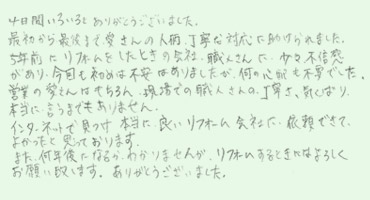 4日間いろいろとありがとうございました。
最初から最後まで葵さんの人柄、丁寧な対応に助けられました。
5年前にリフォームをしたときの会社、職人さんに、少々不信感
があり、今回も初めは不安はありましたが、何の心配も不要でした。
営業の葵さんはもちろん、現場での職人さんの丁寧さ、気くばり、
本当に言うまでもありません。
インターネットで見つけ本当に良いリフォーム会社に、依頼できて
よかったと思っております。
また、何年後になるかわかりませんが、リフォームするときにはよろしく
お願い致します。ありがとうございました。